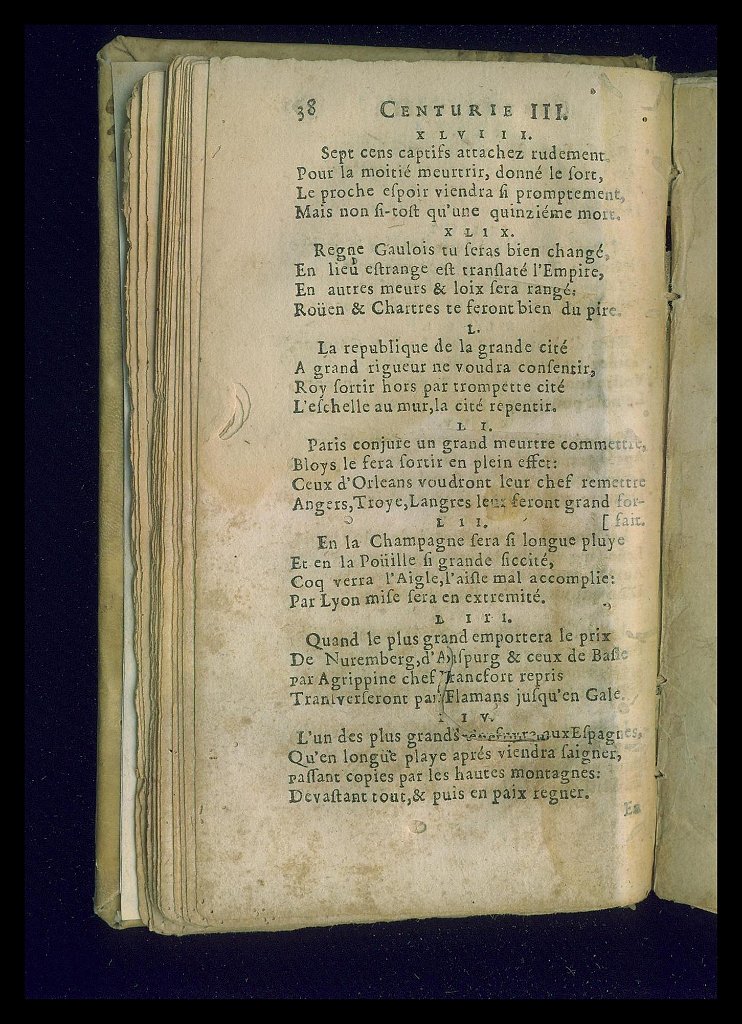 38 CENTURIE III.
XLVIII.
Sept cens captifs attachez rudement,
Pour la moitié meurtrir, donné le ſort,
Le proche eſpoir viendra ſi promptement,
Mais non ſi-toſt qu'une quinziéme mort.
XLIX.
Regne Gaulois tu ſeras bien changé,
En lieu eſtrange eſt tranſlaté l'Empire,
En autres meurs & loix ſera rangé:
Roüen & Chartres te feront bien du pire.
L.
La republique de la grande cité
A grand rigueur ne voudra conſentir,
Roy ſortir hors par trompette cité
L'eſchelle au mur, la cité repentir.
LI.
Paris conjure un grand meurtre commettre,
Bloys le fera ſortir en plein effet:
Ceux d'Orleans voudront leur chef remettre
Angers, Troye, Langres leur feront grand for-
LII. [fait.
En la Champagne ſera ſi longue pluye
Et en la Poüille ſi grande ſiccité,
Coq verra l'Aigle, l'aiſle mal accomplie:
Par Lyon miſe ſera en extremité.
LIII.
Quand le plus grand emportera le prix
De Nuremberg, d'Auſpurg & ceux de Baſle
par Agrippine chef Francfort repris
Tranſverſeront par Flamans juſqu'en Gale.
LIV.
L'un des plus grands aux Eſpagnes,
Qu'en longue playe aprés viendra ſaigner,
paſſant copies par les hautes montagnes:
Devaſtant tout, & puis en paix regner.
En